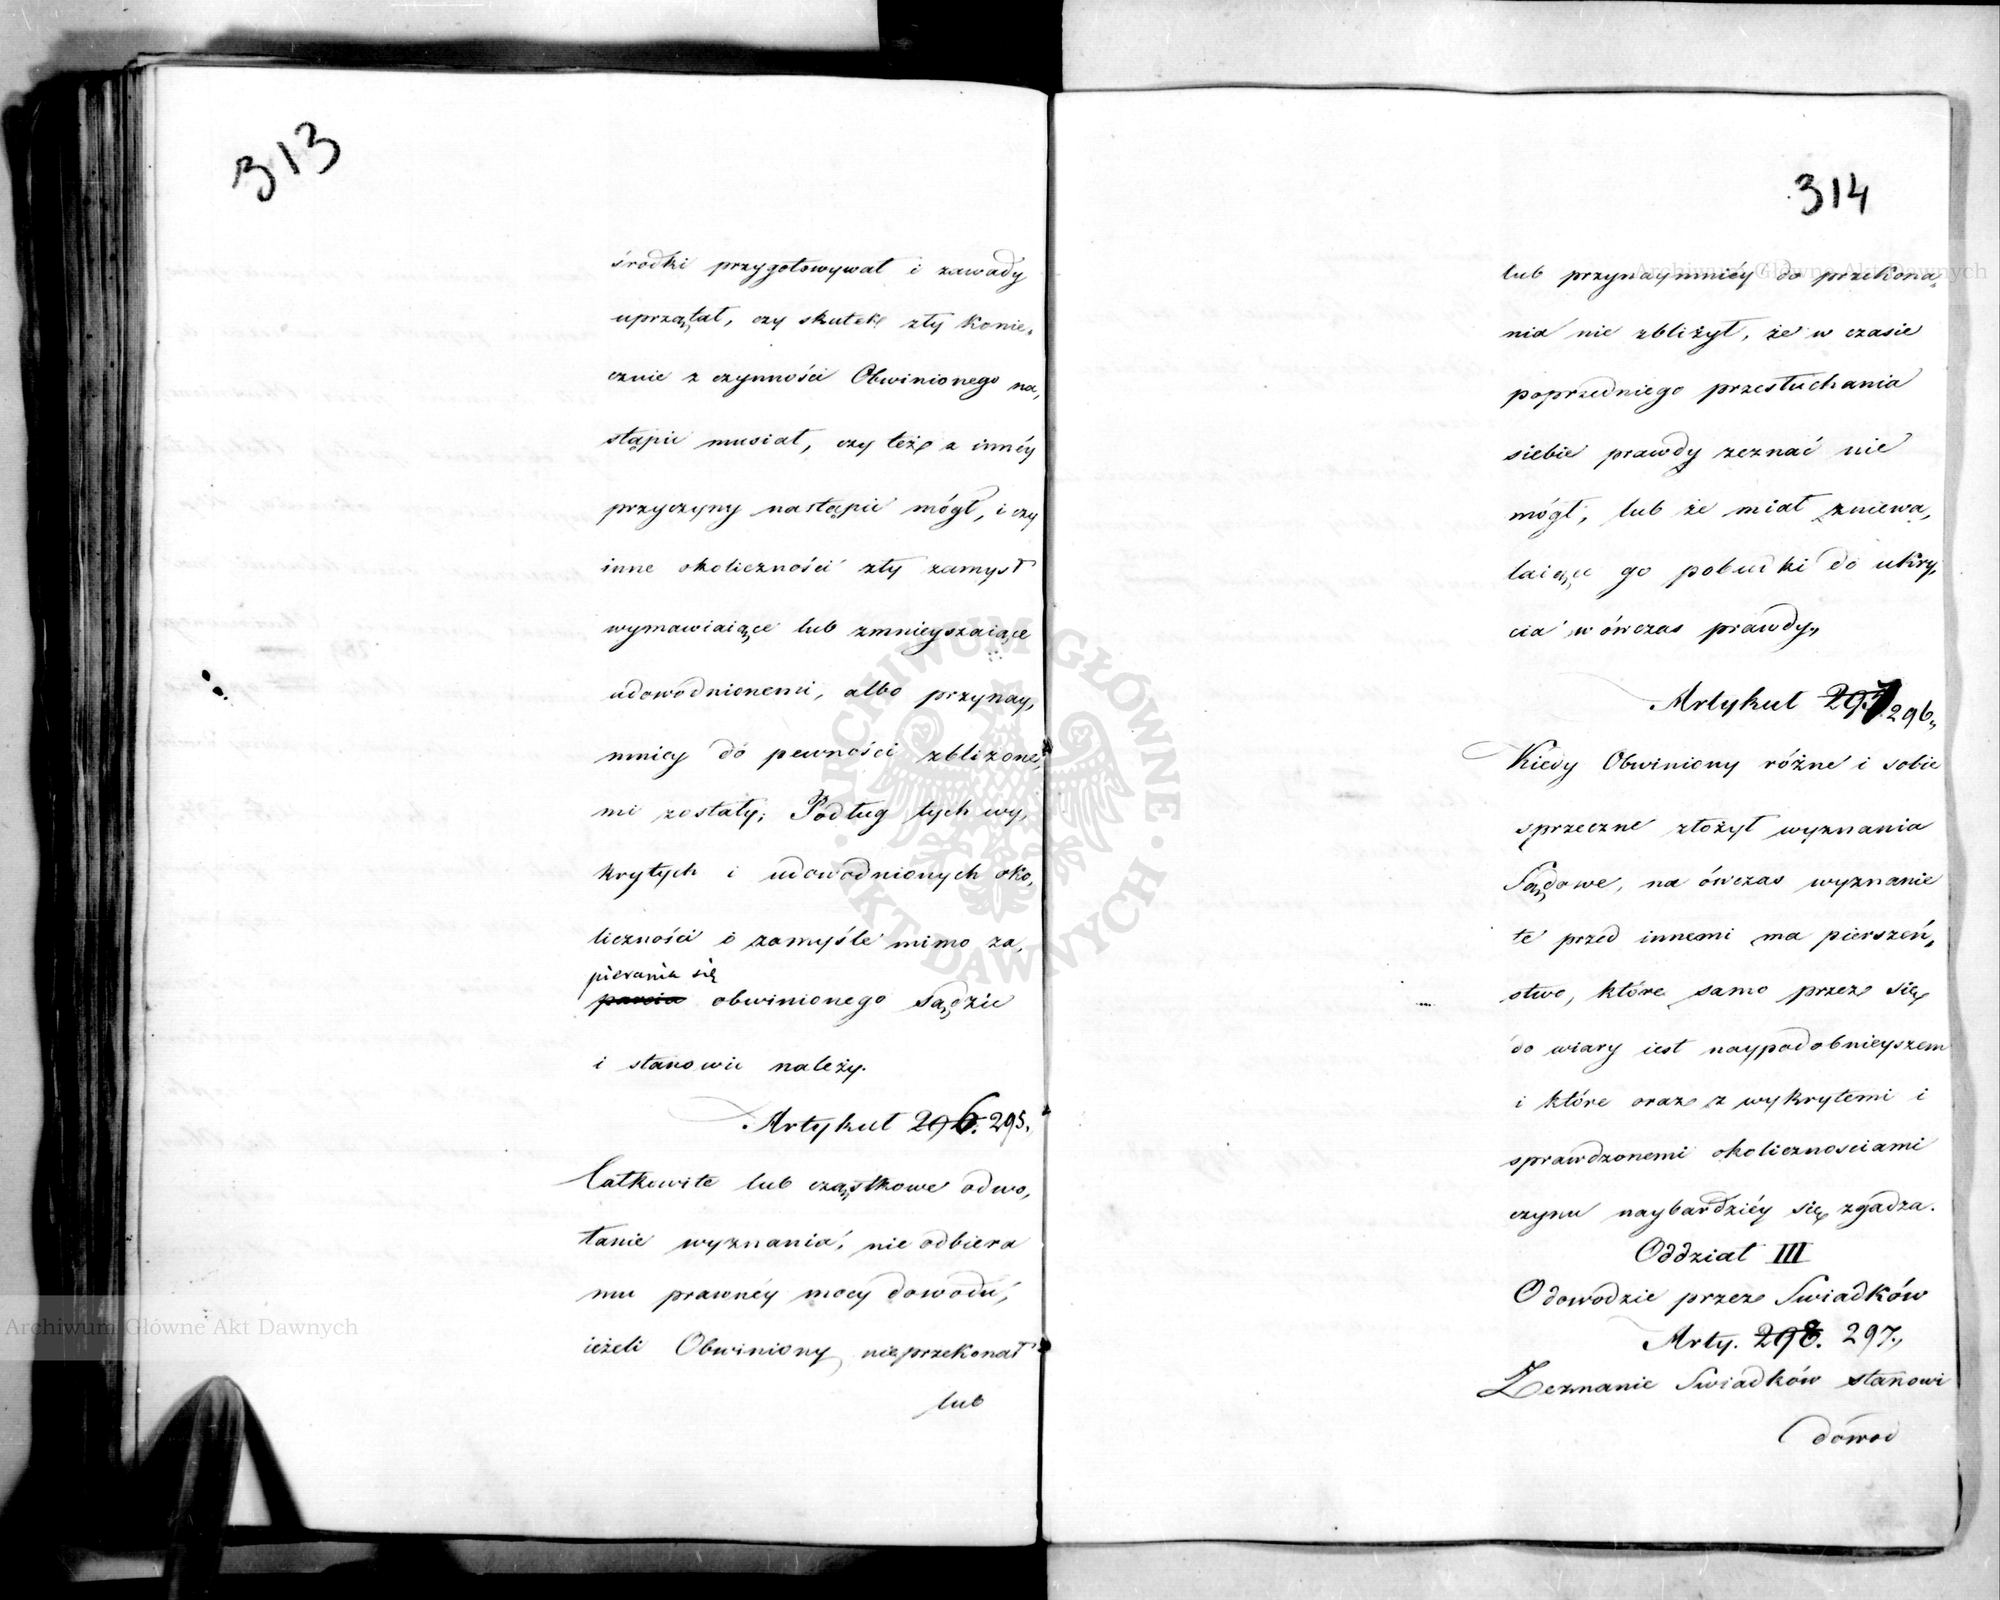 313
środki przygotowywał i zawady
uprzątał, czy skutek zły konie„
cznie z czynności Obwinionego na„
stąpić musiał, czy też z innéy
przyczyny nastąpić mógł, i czy
inne okoliczności zły zamysł
wymawiaiące lub zmnieyszaiące
udowodnionemi, albo przynay„
mniey do pewności zbliżone„
mi zostały; Podług tych wy„
krytych i udowodnionych oko„
liczności o zamyśle mimo za„
pierania się
parcia obwinionego Sądzić
i stanowić należy.
Artykuł 296. 295.
Całkowite lub cząstkowe odwo„
łanie wyznania, nie odbiera
mu prawnéy mocy dowodu,
ieżeli Obwiniony nieprzekonał
lub
314
lub przynaymniéy do przekona„
nia nie zbliżył, że w czasie
poprzedniego przesłuchania
siebie prawdy zeznać nie
mógł, lub że miał zniewa„
laiące go pobudki do ukry„
cia wówczas prawdy„
Artykuł 297. 296„
Kiedy Obwiniony różne i sobie
sprzeczne złożył wyznania
Sądowe, na ówczas wyznanie
te przed innemi ma pierszeń„
stwo, które samo przez się
do wiary iest naypodobnieyszem
i które oraz z wykrytemi i
sprawdzonemi okolicznosciami
czynu naybardziéy się zgadza.
Oddział III
O dowodzie przez Swiadków
Arty. 298. 297.„
Zeznanie Swiadków stanowi
dowod
Archiwum Główne Akt Dawnych
Archiwum Główne Akt Dawnych
ARCHIWUM GŁÓWNE · AKT DAWNYCH ·